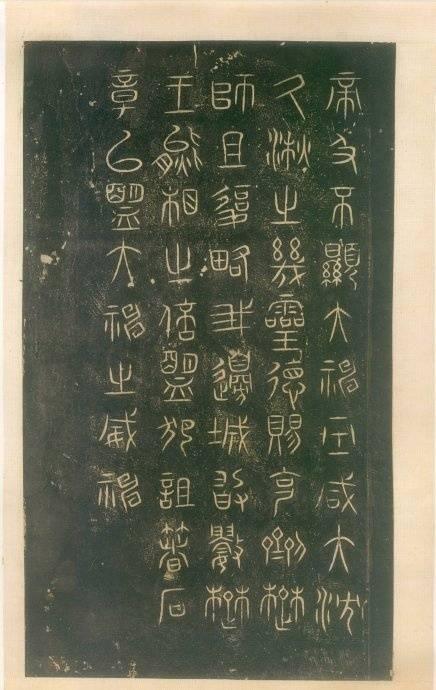 帝及不顯大神巫咸大沈
久湫之幾靈德賜克劑楚
師且復略我邊城敢數楚
王熊相之倍盟犯詛箸石
章以盟大神之威神